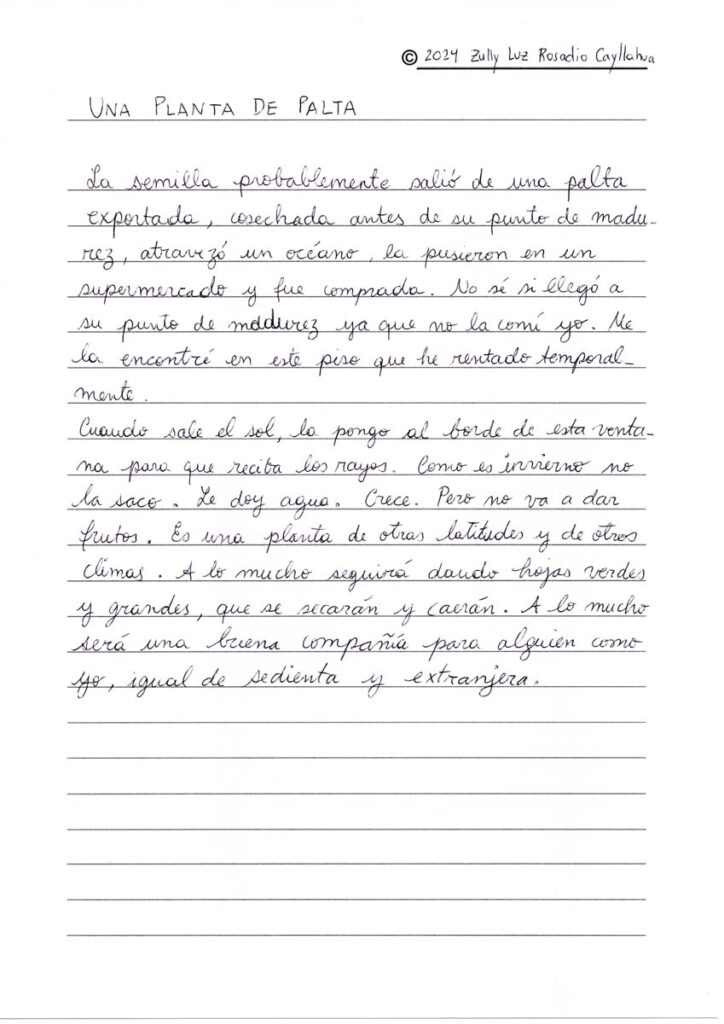 © 2024 Zully Luz Rosadio Cayllahua
UNA PLANTA DE PALTA
La semilla probablemente salió de una palta
exportada, cosechada antes de su punto de madu-
rez, atravezó un océano, la pusieron en un
supermercado y fue comprada. No sé si llegó a
su punto de madurez ya que no la comí yo. Me
la encontré en este piso que he rentado temporal-
mente.
Cuando sale el sol, la pongo al borde de esta venta-
na para que reciba los rayos. Como es invierno no
la saco. Le doy agua. Crece. Pero no va a dar
frutos. Es una planta de otras latitudes y de otros
climas. A lo mucho seguirá dando hojas verdes
y grandes, que se secarán y caerán. A lo mucho
será una buena compañía para alguien como
yo, igual de sedienta y extranjera.